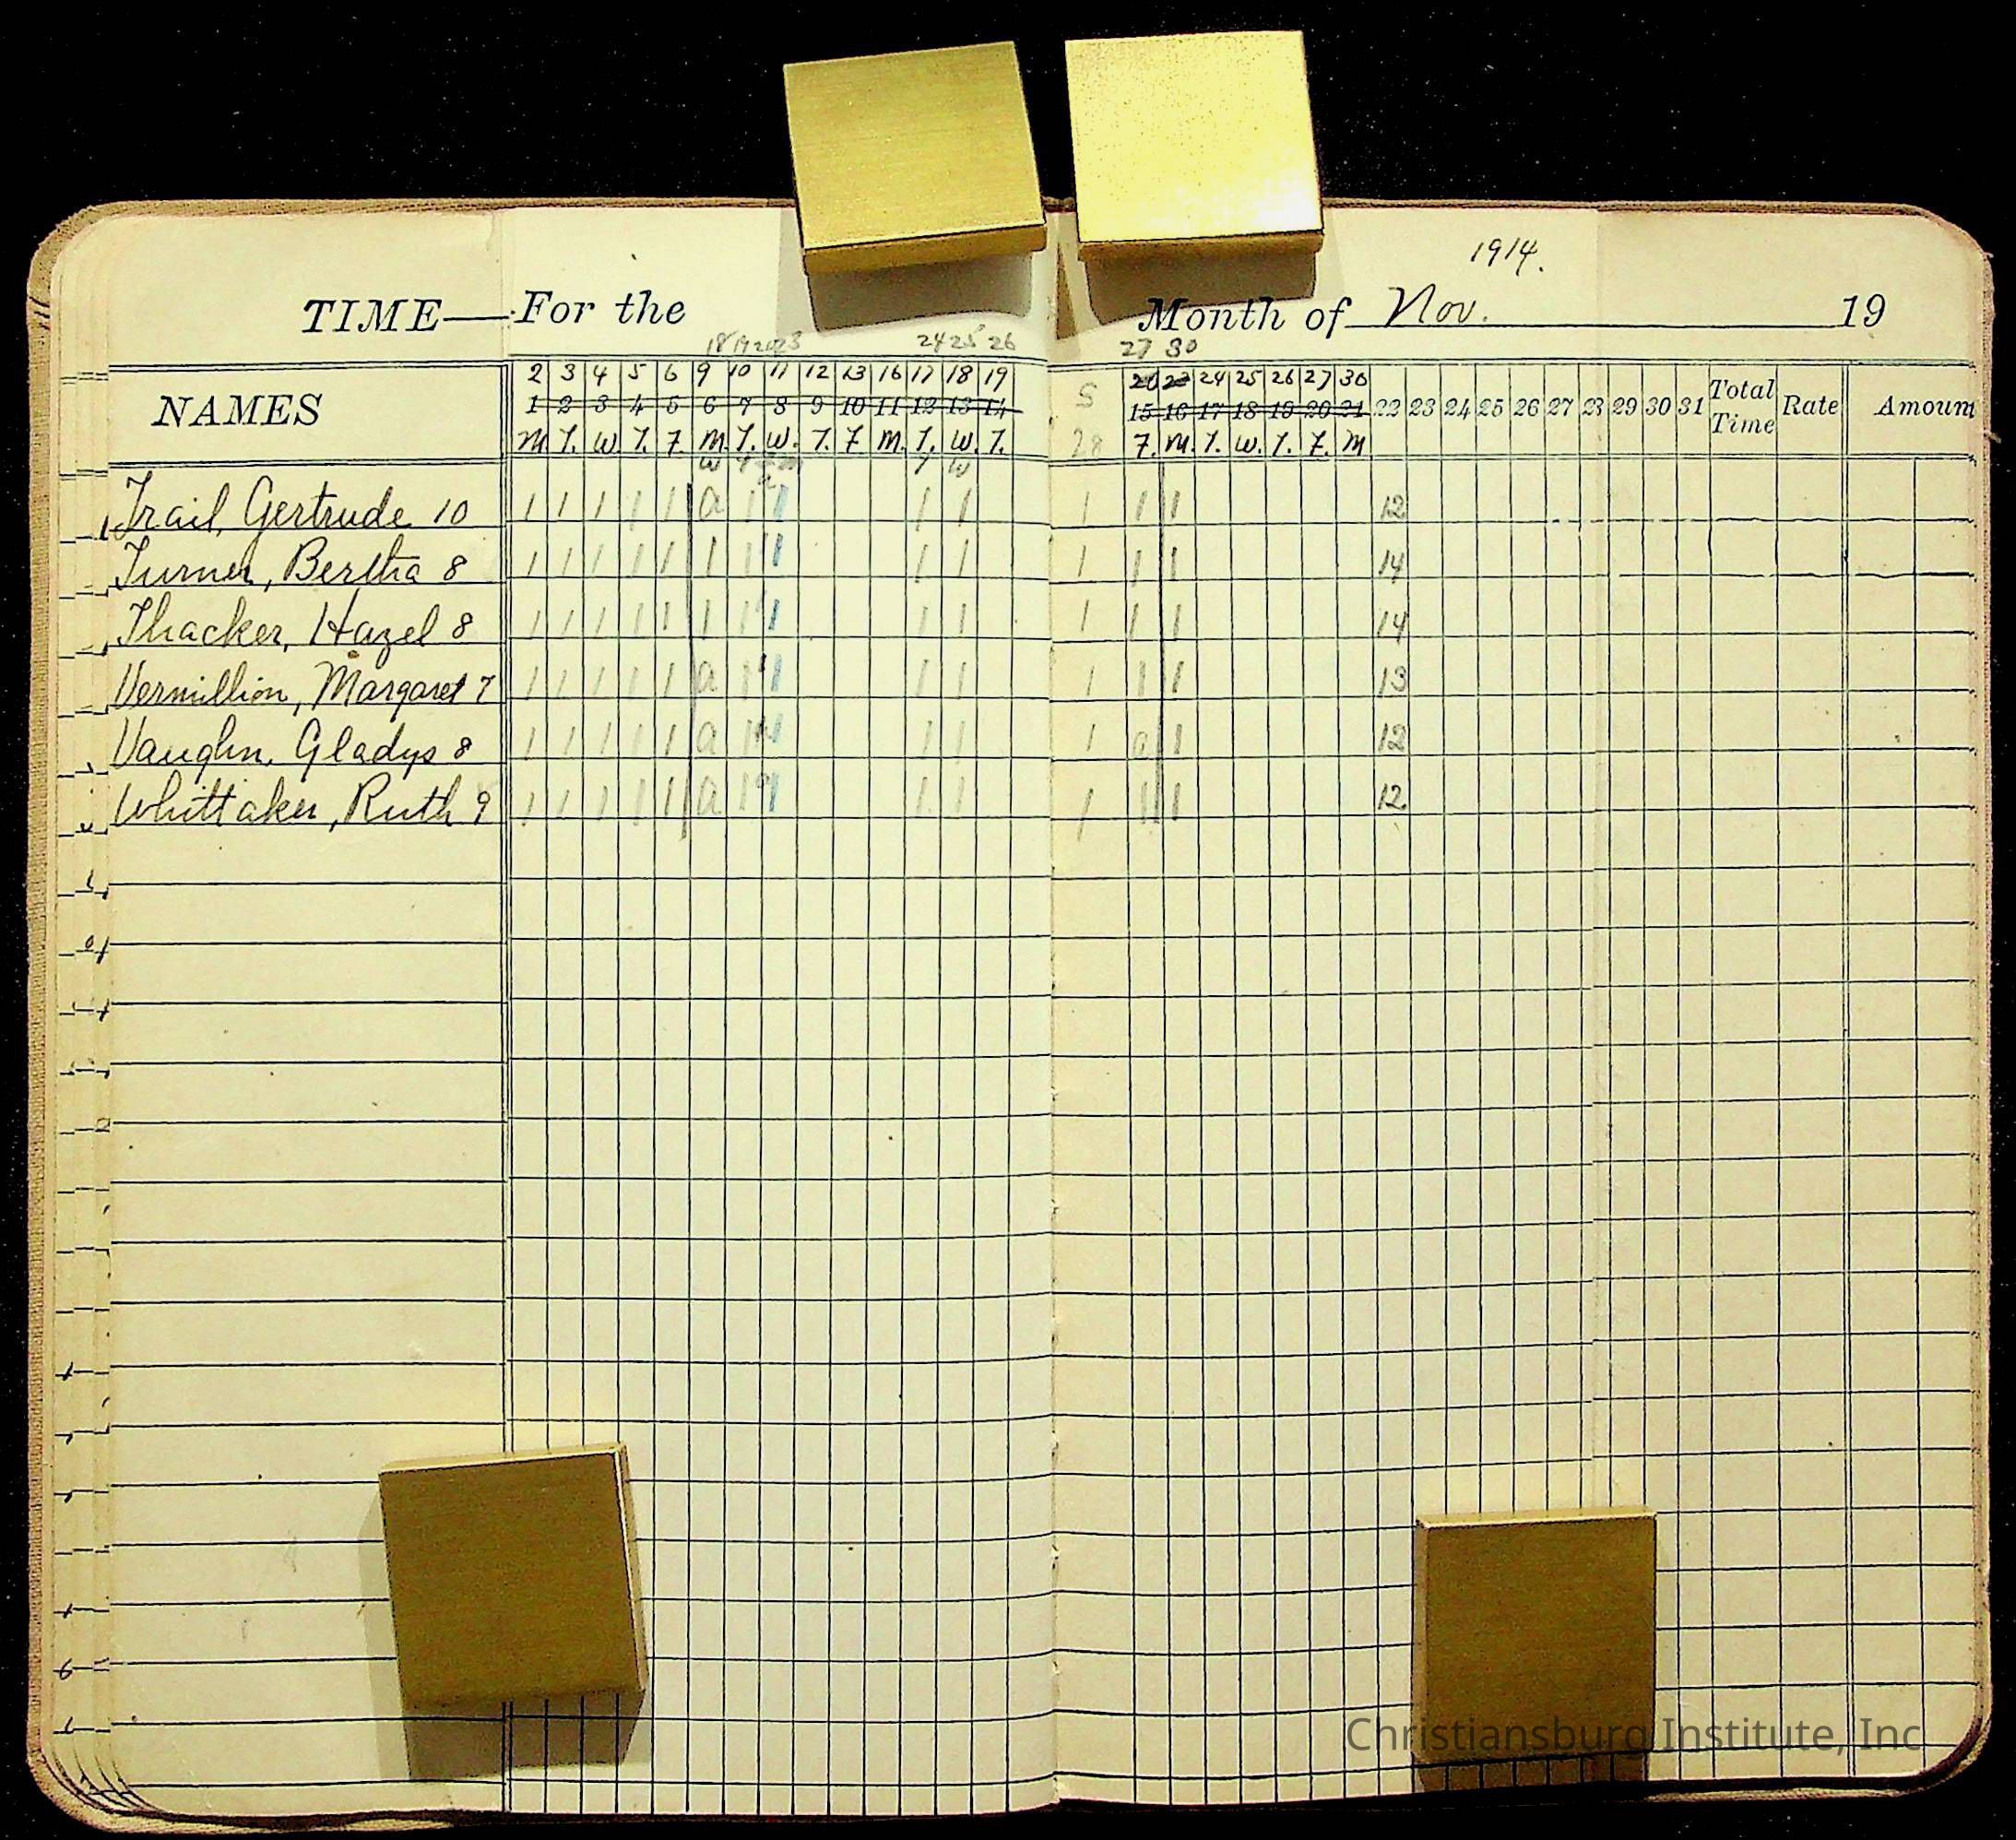 1914.
TIME—For the Month of Nov. 19
18 19 20 23 24 25 26 27 30
2 3 4 5 6 9 10 11 12 13 16 17 18 19 S 20 23 24 25 26 27 30
NAMES 1 2 3 4 5 6 7 8 9 10 11 12 13 14 15 16 17 18 19 20 21 22 23 24 25 26 27 28 29 30 31 Total Time Rate Amount
M. T. W. T. F. M. T. W. T. F. M. T. W. T. 28 F. M. T. W. T. F. M
W T T W
Trail, Gertrude 10 1 1 1 1 1 a 1 1 1 1 1 1 1 12
Turner, Bertha 8 1 1 1 1 1 1 1 1 1 1 1 1 1 1 14
Thacker, Hazel 8 1 1 1 1 1 1 1 1 1 1 1 1 1 1 14
Vermillion, Margaret 7 1 1 1 1 1 a 1 1 1 1 1 1 1 1 13
Vaughn, Gladys 8 1 1 1 1 1 a 1 1 1 1 1 1 a 1 12
Whittaker, Ruth 9 1 1 1 1 1 a 1 a 1 1 1 1 1 1 12
Christiansburg Institute, Inc